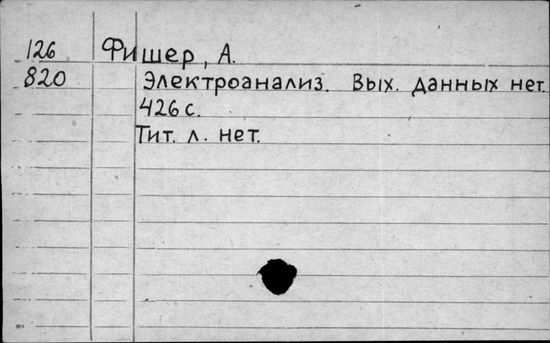 126 Фишер, А.
820 Электроанализ. Вых. данных нет.
426 с.
Тит. л. нет.